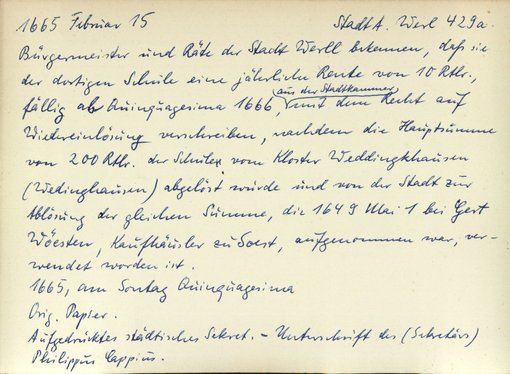 1665 Februar 15 StadtA. Werl 429a.
Bürgermeister und Räte der Stadt Werll bekennen, daß sie
der dortigen Schule eine jährliche Rente von 10 Rtlr.,
aus der Stadtkammer
fällig ab Quinquagesima 1666, mit dem Recht auf
Wiedereinlösung verschreiben, nachdem die Hauptsumme
von 200 Rtlr. der Schule vom Kloster Weddingkhausen
(Wedinghausen) abgelöst wurde und von der Stadt zur
Ablösung der gleichen Summe, die 1649 Mai 1 bei Gert
Wöesten, Kaufhäusler zu Soest, aufgenommen war, ver-
wendet worden ist.
1665, am Sontag Quinquagesima
Orig. Papier.
Aufgedrücktes städtisches Sekret. - Unterschrift des (Sekretärs)
Philippus Cappius.